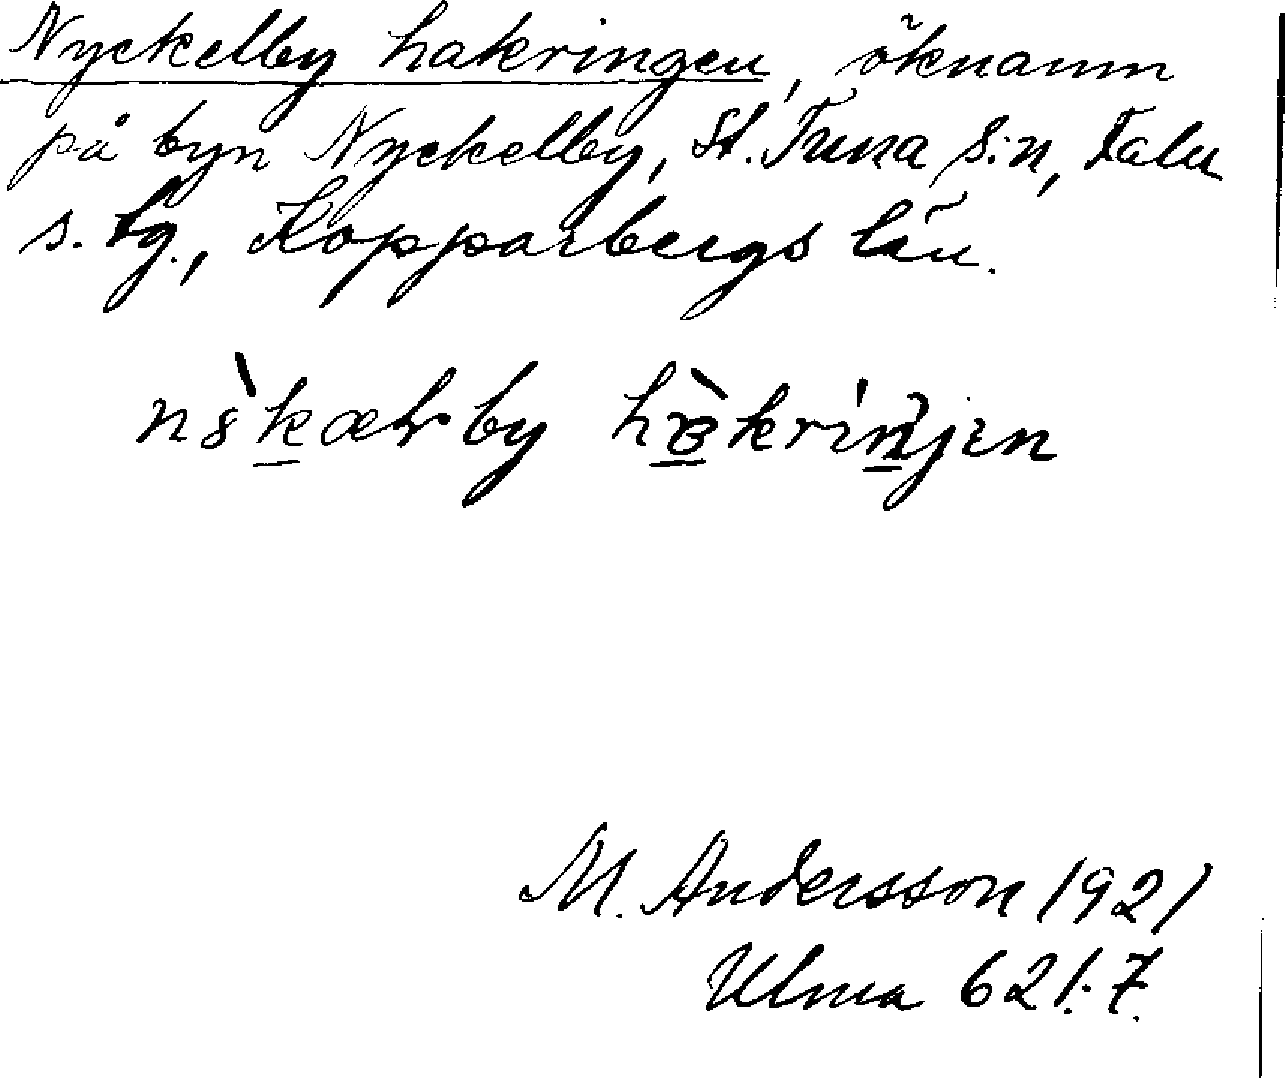 Nyckelby hakringen, öknamn
på byn Nyckelby, St. Tuna s:n, Falu
s. tg., Kopparbergs län.
M. Andersson 1921
Ulma 621:7.